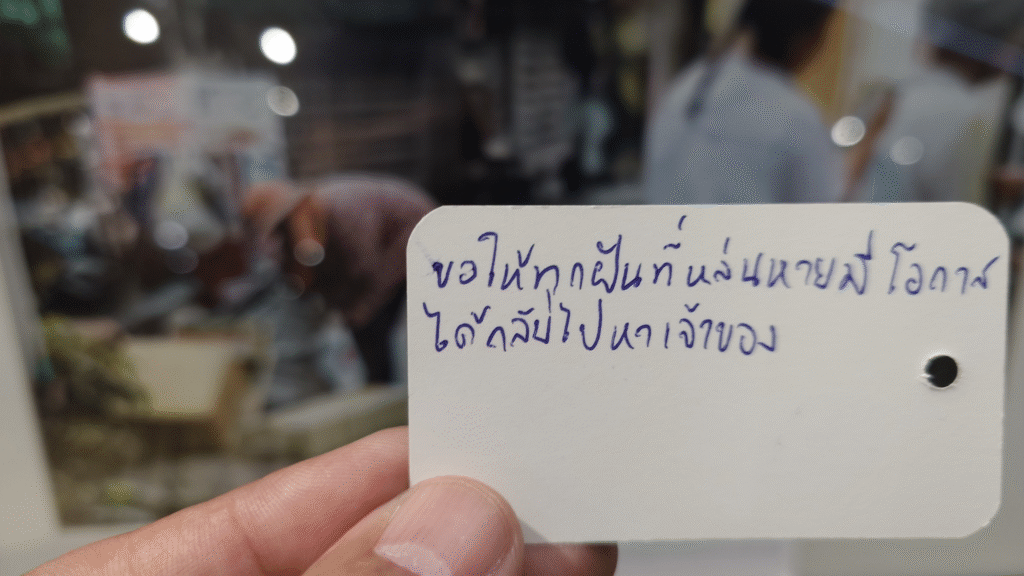 ขอให้ทุกฝันที่หล่นหายมีโอกาส
ได้กลับไปหาเจ้าของ